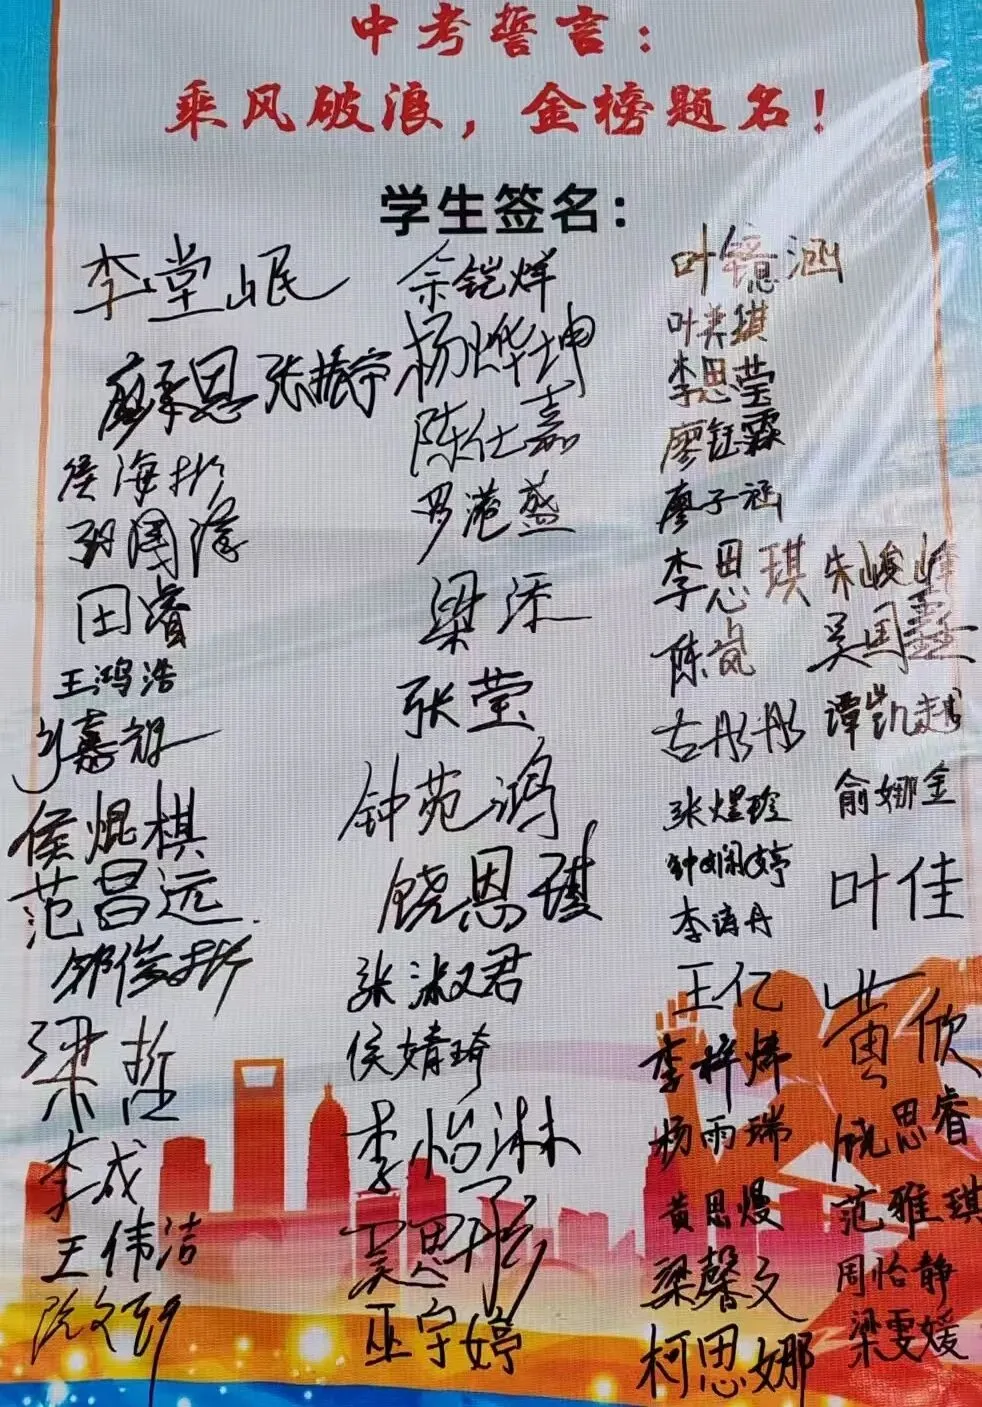 中考誓言：
乘风破浪，金榜题名！
学生签名：
李堂岷
廖承恩 张振宁
侯海彬
田睿
王鸿浩
刘嘉智
侯焜棋
范昌远
邹俊彬
梁哲
李成
王伟洁
余铠烊
杨烨坤
陈仕嘉
罗港盛
梁添
张莹
钟苑鸿
饶恩琪
张淑君
侯婧琦
李怡淋
吴思彤
巫宇婷
叶镱涵
叶美琪
李思莹
廖钰霖
廖子涵
李思琪
陈岚
古彤彤
张煜玲
钟娴婷
李涛丹
王亿
李梓烨
杨雨瑞
黄思熳
梁馨文
柯思娜
朱峻峰
吴国鑫
谭凯越
俞娜金
叶佳
黄欣
饶思睿
范雅琪
周怡静
梁雯媛